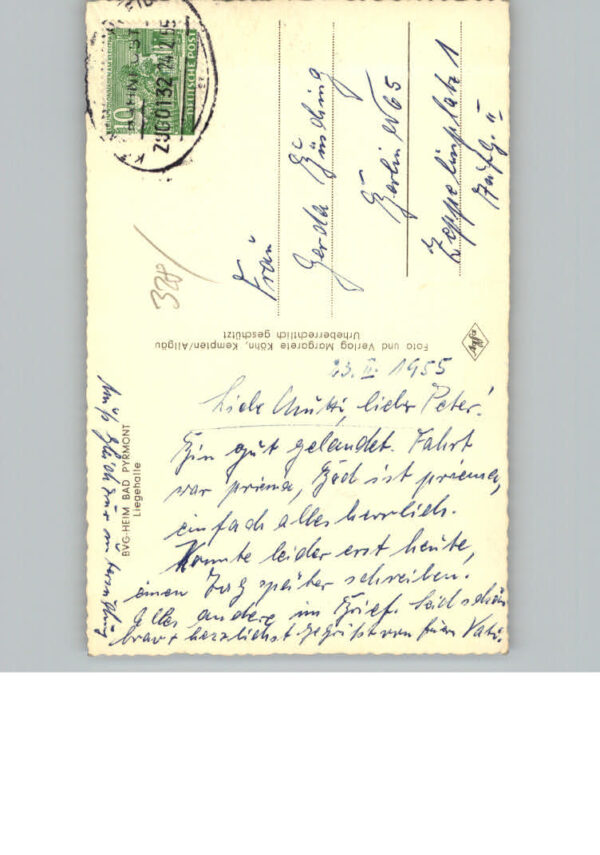 10
DEUTSCHE POST
BAHNPOST
ZUG 0132 24.2.55
328
Frau
Gerda Bünding
Berlin N 65
Zeppelinplatz 1
Aufg. II
Foto und Verlag Margarete Köhn, Kempten/Allgäu
Urheberrechtlich geschützt
Agfa
BVG-HEIM BAD PYRMONT
Liegehalle
23. II. 1955
Liebe Mutti, lieber Peter!
Bin gut gelandet. Fahrt
war priema, Bad ist priema,
einfach alles herrlich.
Konnte leider erst heute,
einen Tag später schreiben.
Alles andere im Brief. Seid schön
brav + herzlichst gegrüßt von Vati.
Muß gleich zur